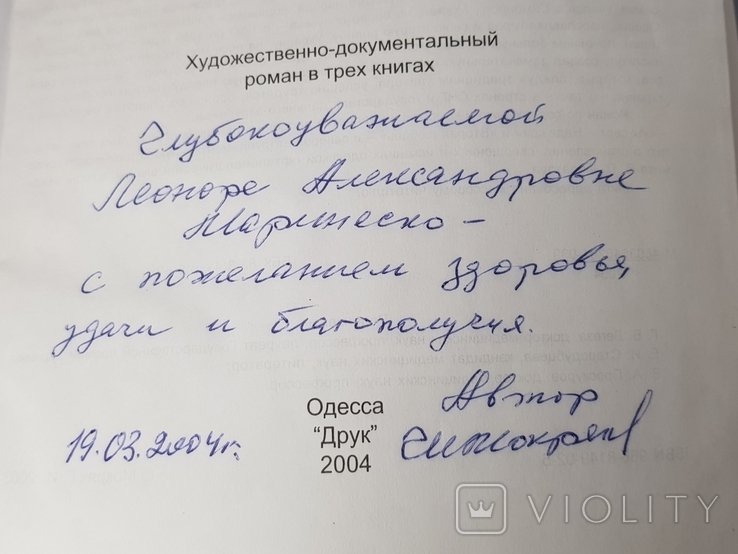 Художественно-документальный
роман в трех книгах
Глубокоуважаемой
Леоноре Александровне
Маринеско –
с пожеланием здоровья,
удачи и благополучия.
Автор
19.03.2004г.
Одесса
"Друк"
2004
VIOLITY